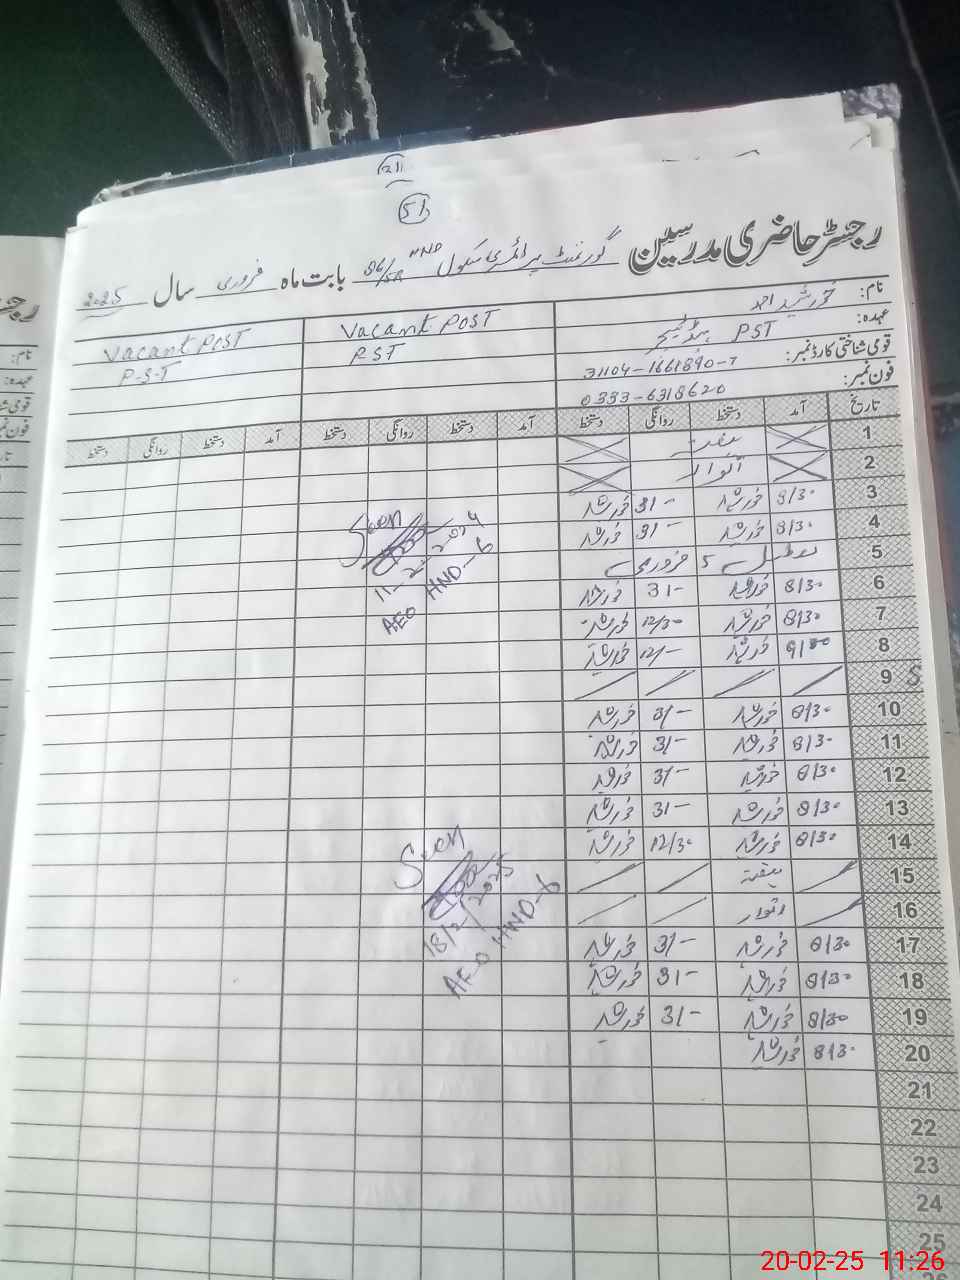 21
51
رجسٹر حاضری مدرسین گورنمنٹ پرائمری سکول 86/5R HND بابت ماہ فروری سال 2025
نام: خورشید احمد
عہدہ: PST ہیڈ ٹیچر
قومی شناختی کارڈ نمبر: 31104-1661890-7
فون نمبر: 0333-6318620
Vacant POST
PST
Vacant POST
P-S-T
تاریخ آمد دستخط روانگی دستخط آمد دستخط روانگی دستخط آمد دستخط روانگی دستخط
1 ہفتہ
2 اتوار
3 8/30 خورشید 3/- خورشید
4 8/30 خورشید 3/- خورشید
5 تعطیل 5 فروری
6 8/30 خورشید 3/- خورشید
7 8/30 خورشید 12/30 خورشید
8 9/00 خورشید 12/- خورشید
9 S
10 8/30 خورشید 3/- خورشید
11 8/30 خورشید 3/- خورشید
12 8/30 خورشید 3/- خورشید
13 8/30 خورشید 3/- خورشید
14 8/30 خورشید 12/30 خورشید
15 ہفتہ
16 اتوار
17 8/30 خورشید 3/- خورشید
18 8/30 خورشید 3/- خورشید
19 8/30 خورشید 3/- خورشید
20 8/30 خورشید
21
22
23
24
25
Seen
11-2-2024
AEO HND-6
Seen
18/2/2025
AEO HND-6
رجسٹر
نام:
عہدہ:
20-02-25 11:26